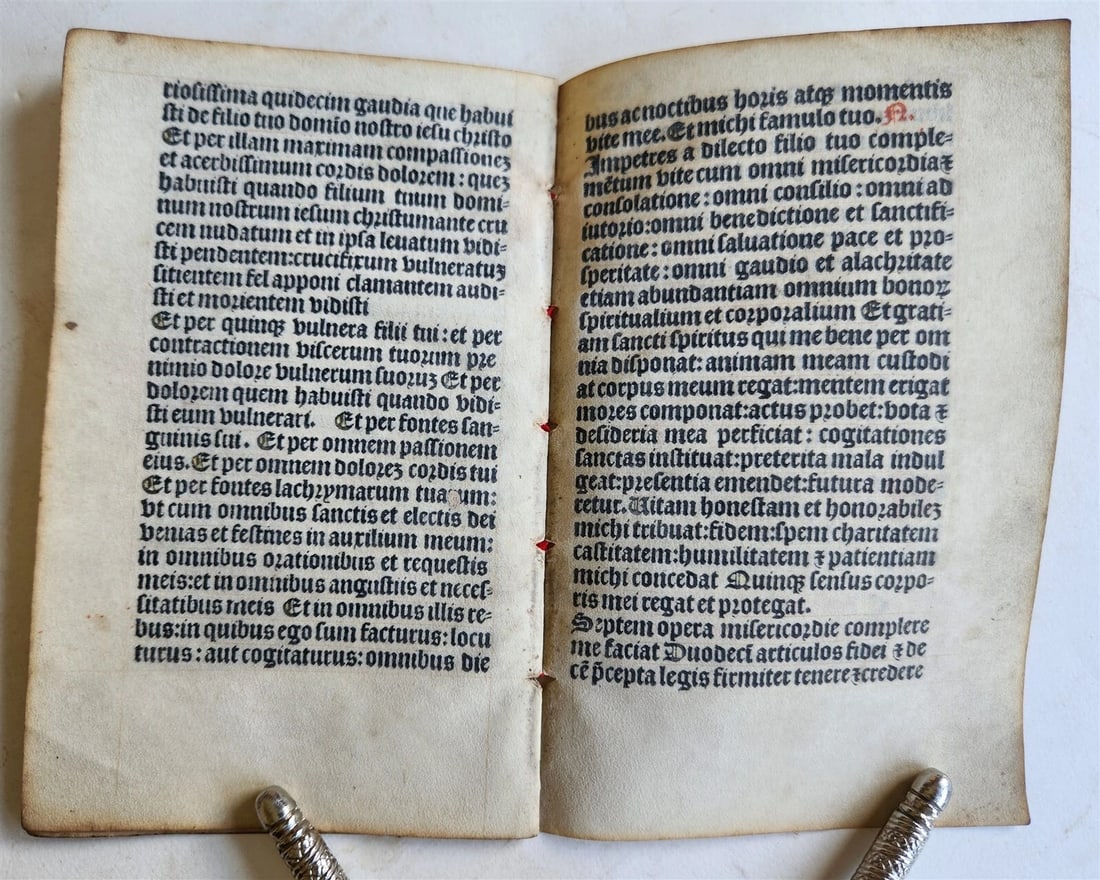 riosissima quidecim gaudia que habui
sti de filio tuo domīo nostro iesu christo
Et per illam maximam compassioneꝫ
et acerbissimum cordis dolorem : queꝫ
habuisti quando filium tuum domi-
num nostrum iesum christumante cru
cem nudatum et in ipsa leuatum vidi-
sti pendentem:crucifixum vulneratuꝫ
sitientem fel apponi clamantem audi-
sti et morientem vidisti
Et per quinqꝫ vulnera filii tui : et per
contractionem viscerum tuorum pre
nimio dolore vulnerum suoruꝫ Et per
dolorem quem habuisti quando vidi-
sti eum vulnerari. Et per fontes san-
guinis sui . Et per omnem passionem
eius. Et per omnem doloreꝫ cordis tui
Et per fontes lachrymarum tua um:
vt cum omnibus sanctis et electis dei
venias et festines in auxilium meum:
in omnibus orationibus et requestis
meis:et in omnibus angustiis et neces-
sitatibus meis Et in omnibus illis re-
bus:in quibus ego sum facturus: locu
turus : aut cogitaturus: omnibus die
bus ac noctibus horis atqꝫ momentis
vite mee. Et michi famulo tuo. N.
Impetres a dilecto filio tuo comple-
mētum vite cum omni misericordia ⁊
consolatione : omni consilio : omni ad
iutorio:omni benedictione et sanctifi-
catione : omni saluatione pace et pro-
speritate : omni gaudio et alachritate
etiam abundantiam omnium bonoꝝ
spiritualium et corporalium Et grati-
am sancti spiritus qui me bene per om
nia disponat: animam meam custodi
at corpus meum regat:mentem erigat
mores componat:actus probet:vota ⁊
desideria mea perficiat : cogitationes
sanctas instituat:preterita mala indul
geat:presentia emendet:futura mode-
retur. Uitam honestam et honorabileꝫ
michi tribuat:fidem:spem charitatem
castitatem:humilitatem ⁊ patientiam
michi concedat Quinqꝫ sensus corpo-
ris mei regat et protegat.
Septem opera misericordie complere
me faciat Duodecī articulos fidei ⁊ de
cē p̄cepta legis firmiter tenere ⁊credere